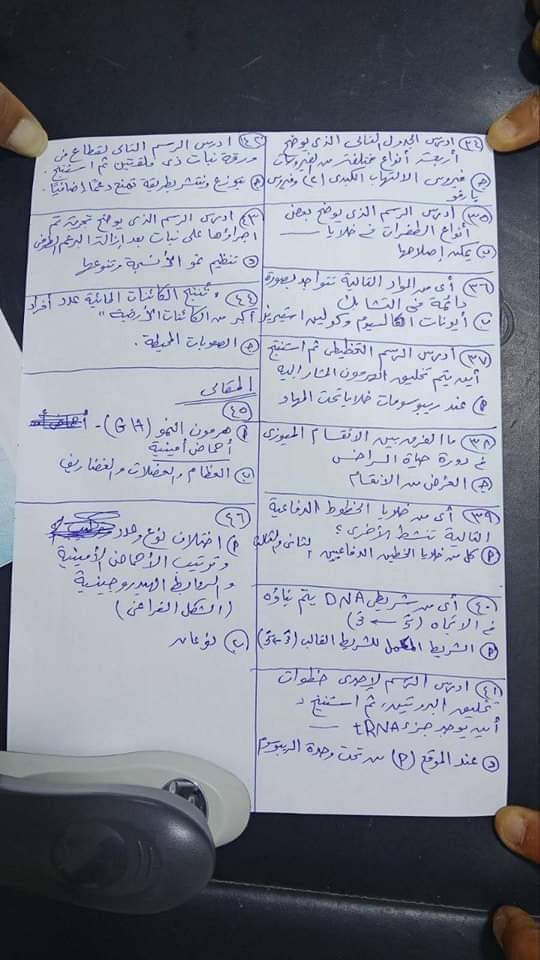 ٣٤ ادرس الجدول التالي الذي يوضح
أربعة أنواع مختلفة من الفيروسات
فيروس الالتهاب الكبدى (C) وفيروس
٣٥ ادرس الرسم الذى يوضح بعض
أنواع الطفرات فى خلايا
ب يمكن إصلاحها
٣٦ أى من المواد التالية تتواجد بصورة
دائمة فى التشابك
ب أيونات الكالسيوم وكولين استيريز
٣٧ ادرس الرسم التخطيطى ثم استنتج
أين يتم تخليق الهرمون المشار إليه
عند ريبوسومات خلايا تحت المهاد
٣٨ ما الفرق بين الانقسام الميوزى
فى دورة حياة السراخس
الغرض من الانقسام
٣٩ أى من خلايا الخطوط الدفاعية
التالية تنشط الأخرى؟
كل من خلايا الخطين الدفاعيين الثانى والثالث
٤٠ أى من شريطى DNA يتم بناؤه
فى الاتجاه (5 ← 3)
الشريط المكمل للشريط القالب (3←5)
٤١ ادرس الرسم لإحدى خطوات
تخليق البروتين، ثم استنتج
أين يوجد جزىء tRNA
د عند الموقع (P) من تحت وحدة الريبوسوم
٤٢ ادرس الرسم التالى لقطاع فى
ورقة نبات ذى فلقتين ثم استنتج
موزع وتنتشر بطريقة تمنع دعمًا إضافيًا.
٤٣ ادرس الرسم الذى يوضح تجربة تم
اجراؤها على نبات بعد إزالة البرعم الطرفى
د تنظيم نمو الأنسجة وتنوعها
٤٤ "تنتج الكائنات المائية عدد أفراد
أكبر من الكائنات الأرضية"
الصعوبات المحيطة.
المقالى
٤٥
هرمون النمو (GH) -
أحماض أمينية
ب العظام والعضلات والغضاريف
٤٦
اختلاف نوع وعدد
وترتيب الأحماض الأمينية
والروابط الهيدروجينية
(الشكل الفراغى)
ب نوعان